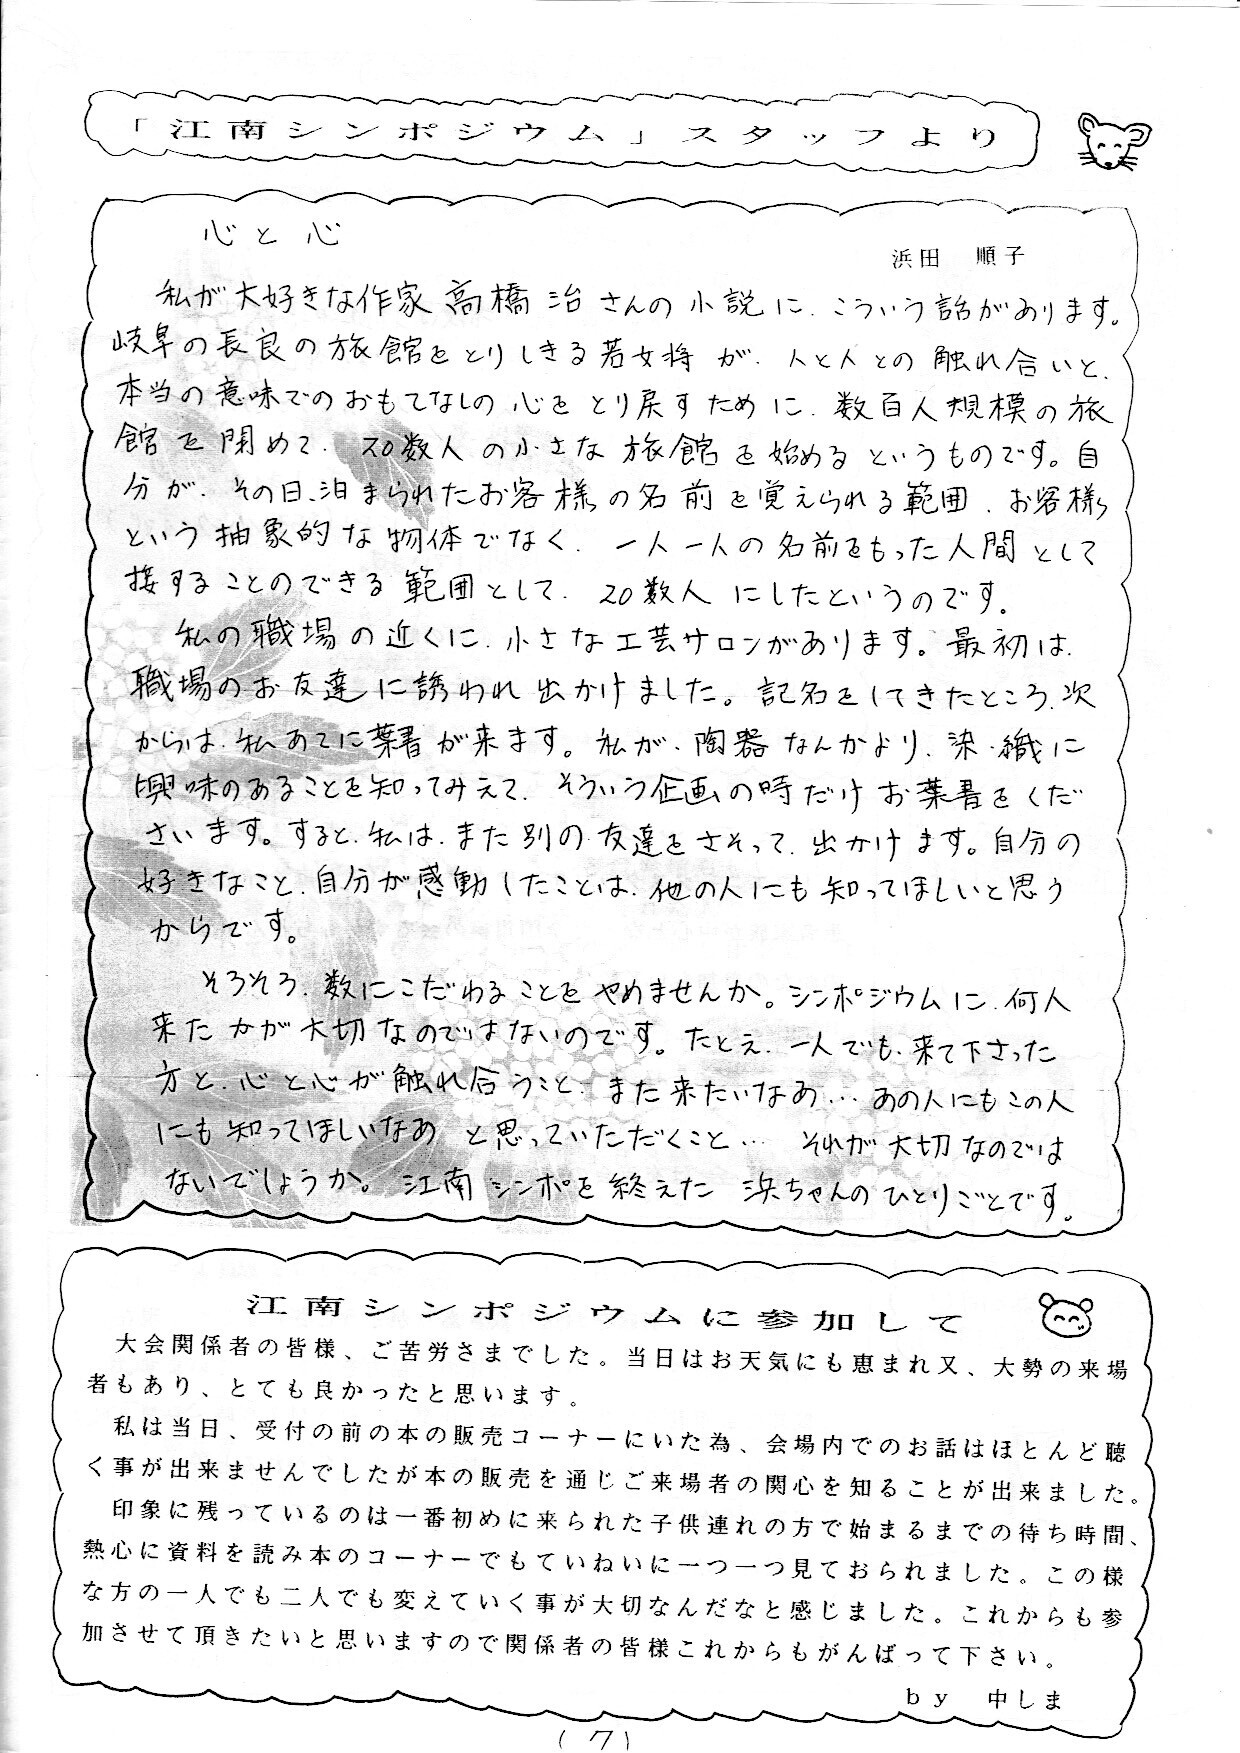 「江南シンポジウム」スタッフより
心と心
浜田　順子
私が大好きな作家高橋治さんの小説に、こういう話があります。
岐阜の長良の旅館をとりしきる若女将が、人と人との触れ合いと、
本当の意味でのおもてなしの心をとり戻すために、数百人規模の旅
館を閉めて、20数人の小さな旅館を始めるというものです。自
分が、その日、泊まられたお客様の名前を覚えられる範囲、お客様
という抽象的な物体でなく、一人一人の名前をもった人間として
接することのできる範囲として、20数人にしたというのです。
私の職場の近くに、小さな工芸サロンがあります。最初は、
職場のお友達に誘われ出かけました。記名をしてきたところ、次
からは、私あてに葉書が来ます。私が、陶器なんかより、染・織に
興味のあることを知ってみえて、そういう企画の時だけお葉書をくだ
さいます。すると、私は、また別の友達をさそって、出かけます。自分の
好きなこと、自分が感動したことは、他の人にも知ってほしいと思う
からです。
そろそろ、数にこだわることをやめませんか。シンポジウムに、何人
来たかが大切なのではないのです。たとえ、一人でも、来て下さった
方と、心と心が触れ合うこと、また来たいなあ… あの人にもこの人
にも知ってほしいなあ と思っていただくこと… それが大切なのでは
ないでしょうか。江南シンポを終えた 浜ちゃんのひとりごとです。
江南シンポジウムに参加して
大会関係者の皆様、ご苦労さまでした。当日はお天気にも恵まれ又、大勢の来場
者もあり、とても良かったと思います。
私は当日、受付の前の本の販売コーナーにいた為、会場内でのお話はほとんど聴
く事が出来ませんでしたが本の販売を通じご来場者の関心を知ることが出来ました。
印象に残っているのは一番初めに来られた子供連れの方で始まるまでの待ち時間、
熱心に資料を読み本のコーナーでもていねいに一つ一つ見ておられました。この様
な方の一人でも二人でも変えていく事が大切なんだなと感じました。これからも参
加させて頂きたいと思いますので関係者の皆様これからもがんばって下さい。
by　中しま
(7)